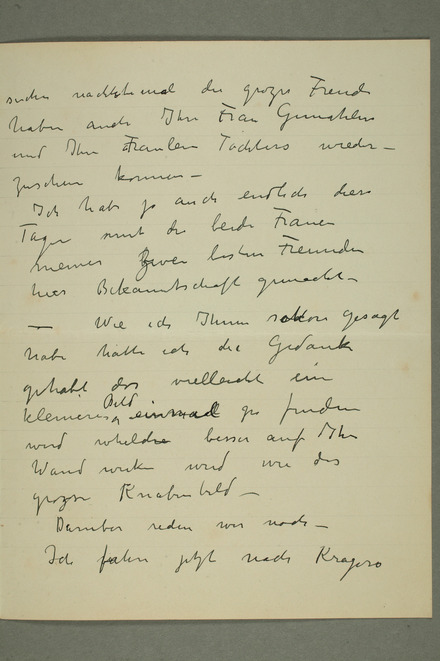 nächstemal die grosse Freude
haben auch Ihre Frau Gemahlin
und Ihre Fraulein Töchters wieder –
zusehen können –
Ich habe ja auch endlich diese
Tage mit die beide Frauen
meiner zwei besten Freunden
hier Bekanntschaft gemacht –
— Wie ich Ihnen schon gesagt
habe hatte ich die Gedanke
gehabt das vielleicht ein
kleineres Bild einmal zu finden
wird welche besser auf Ihre
Wand wirken wird wie das
grosse Knabenbild –
Daruber reden wir noch –
Ich fahre jetzt nach Kragero